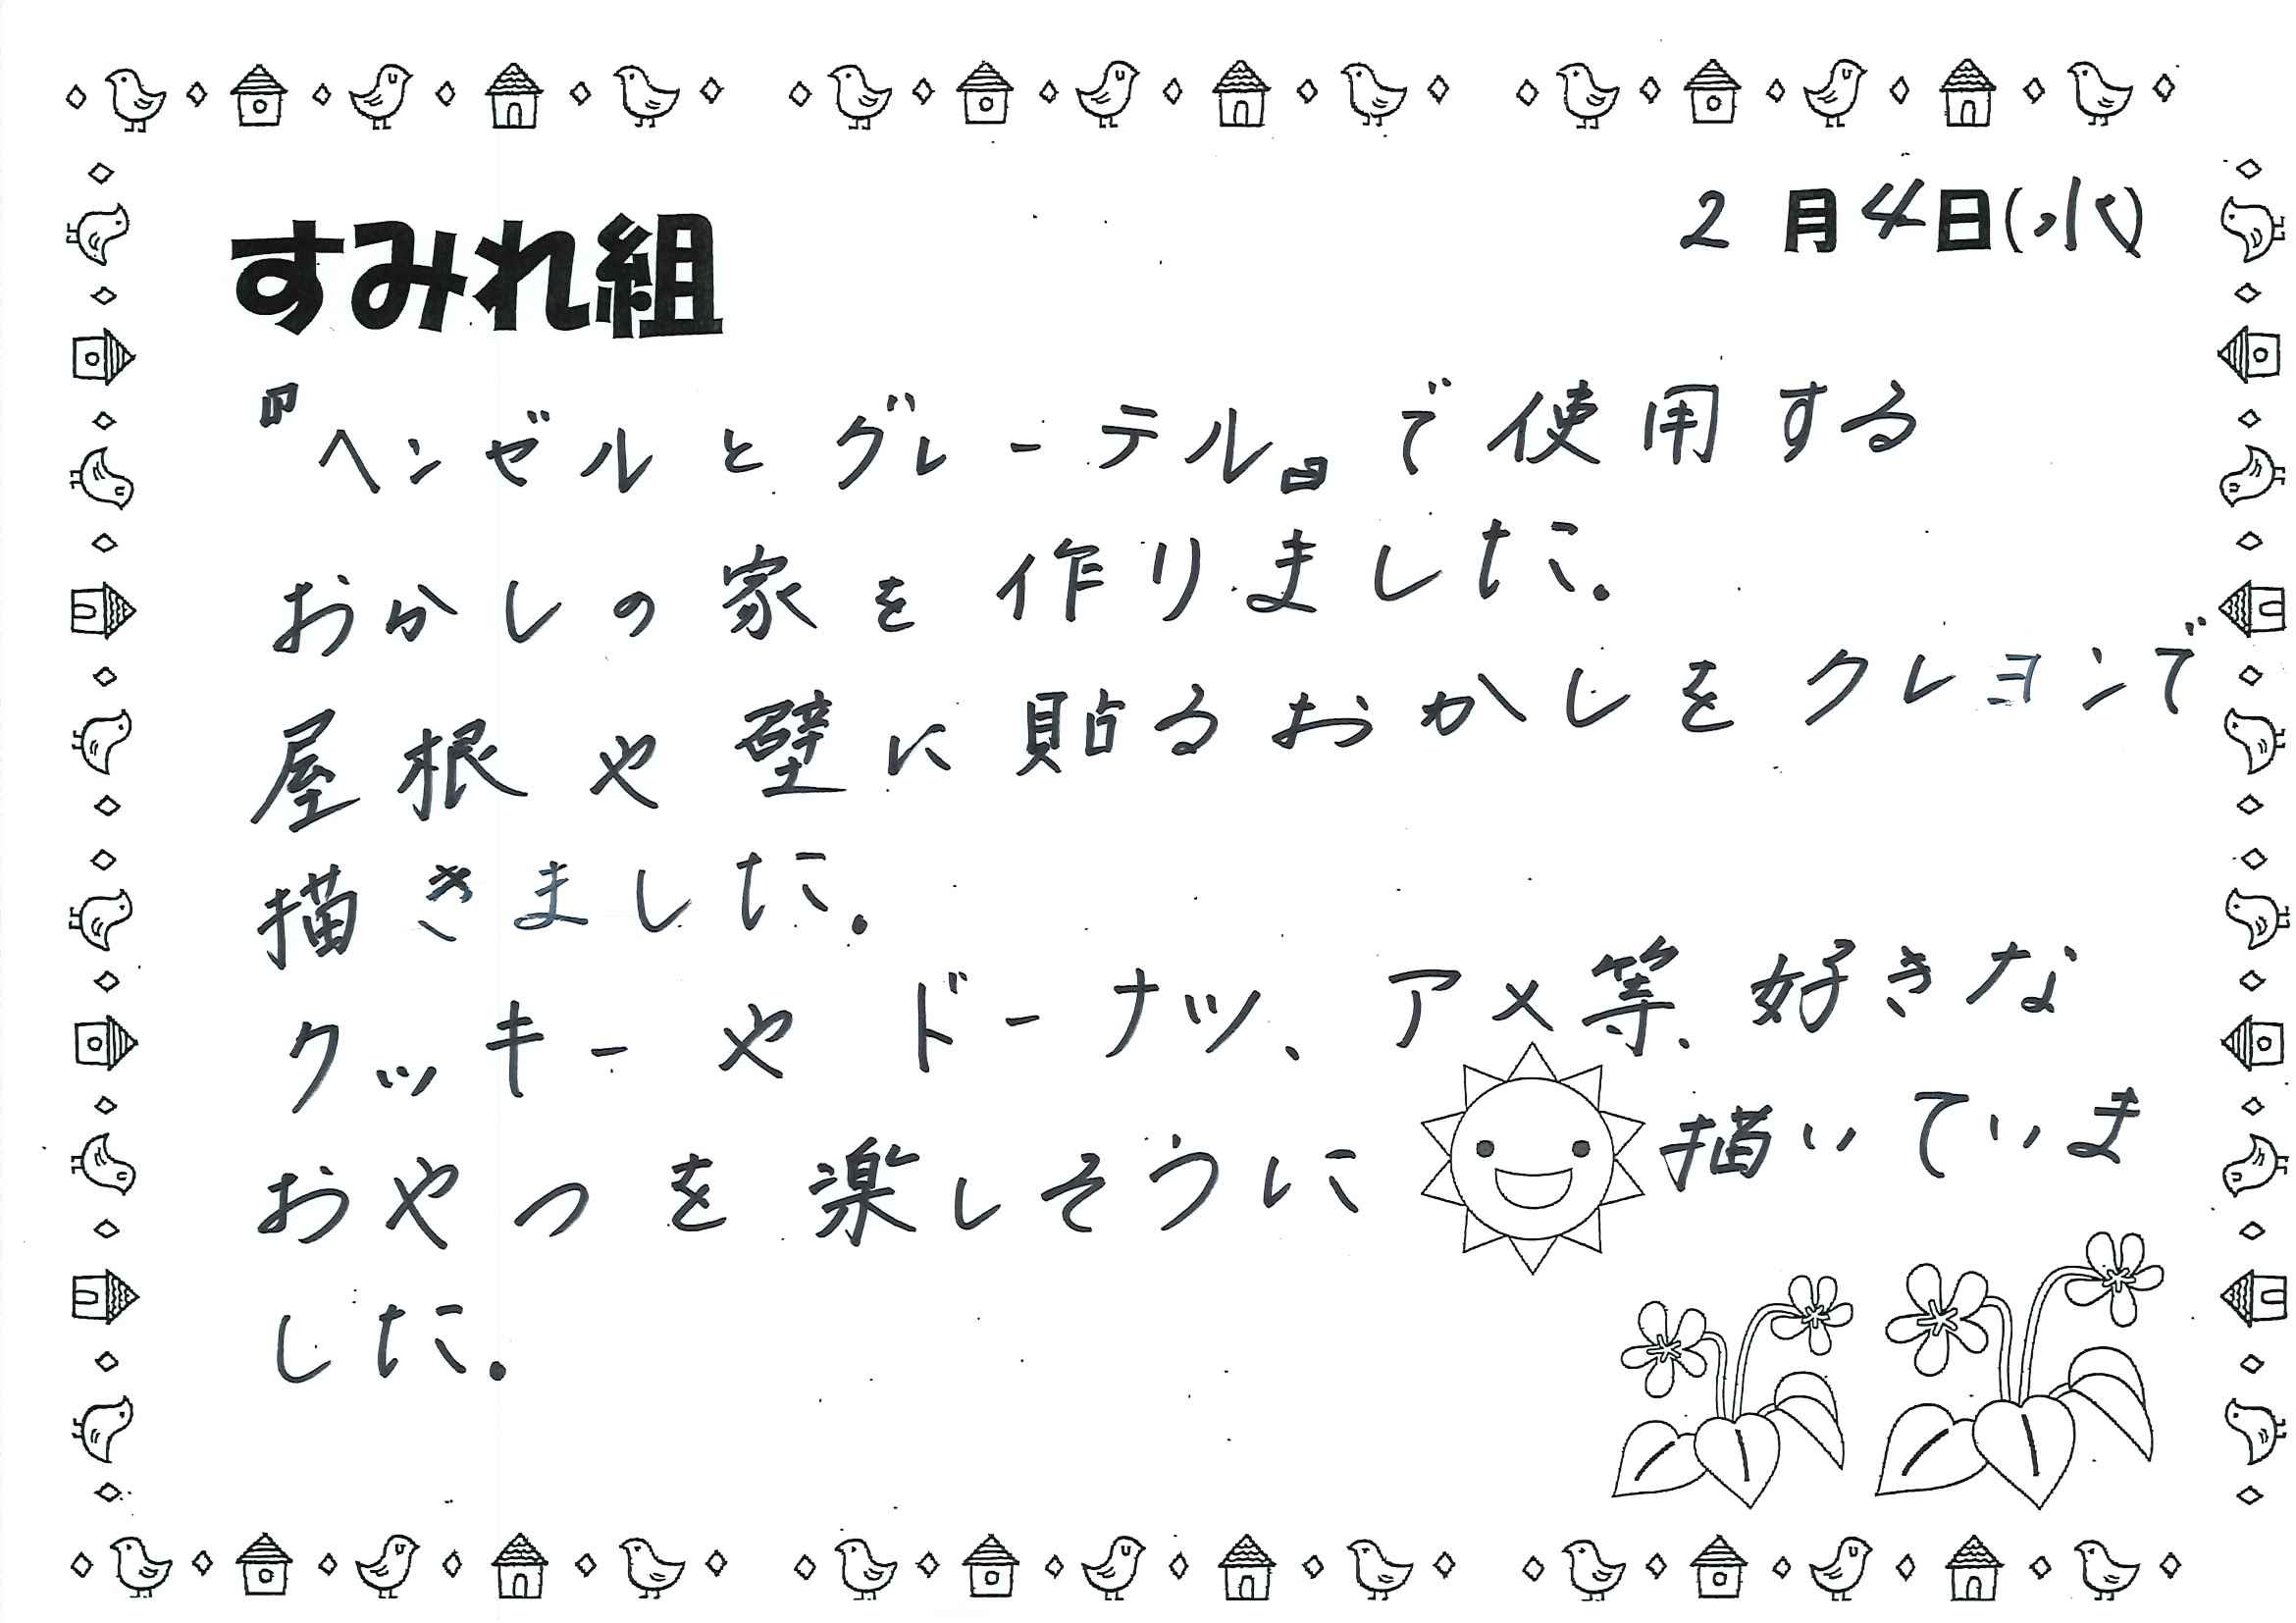 2月4日(水)
すみれ組
『ヘンゼルとグレーテル』で使用する
おかしの家を作りました.
屋根や壁に貼るおかしをクレヨンで
描きました.
クッキーやドーナツ、アメ等、好きな
おやつを楽しそうに描いていま
した.